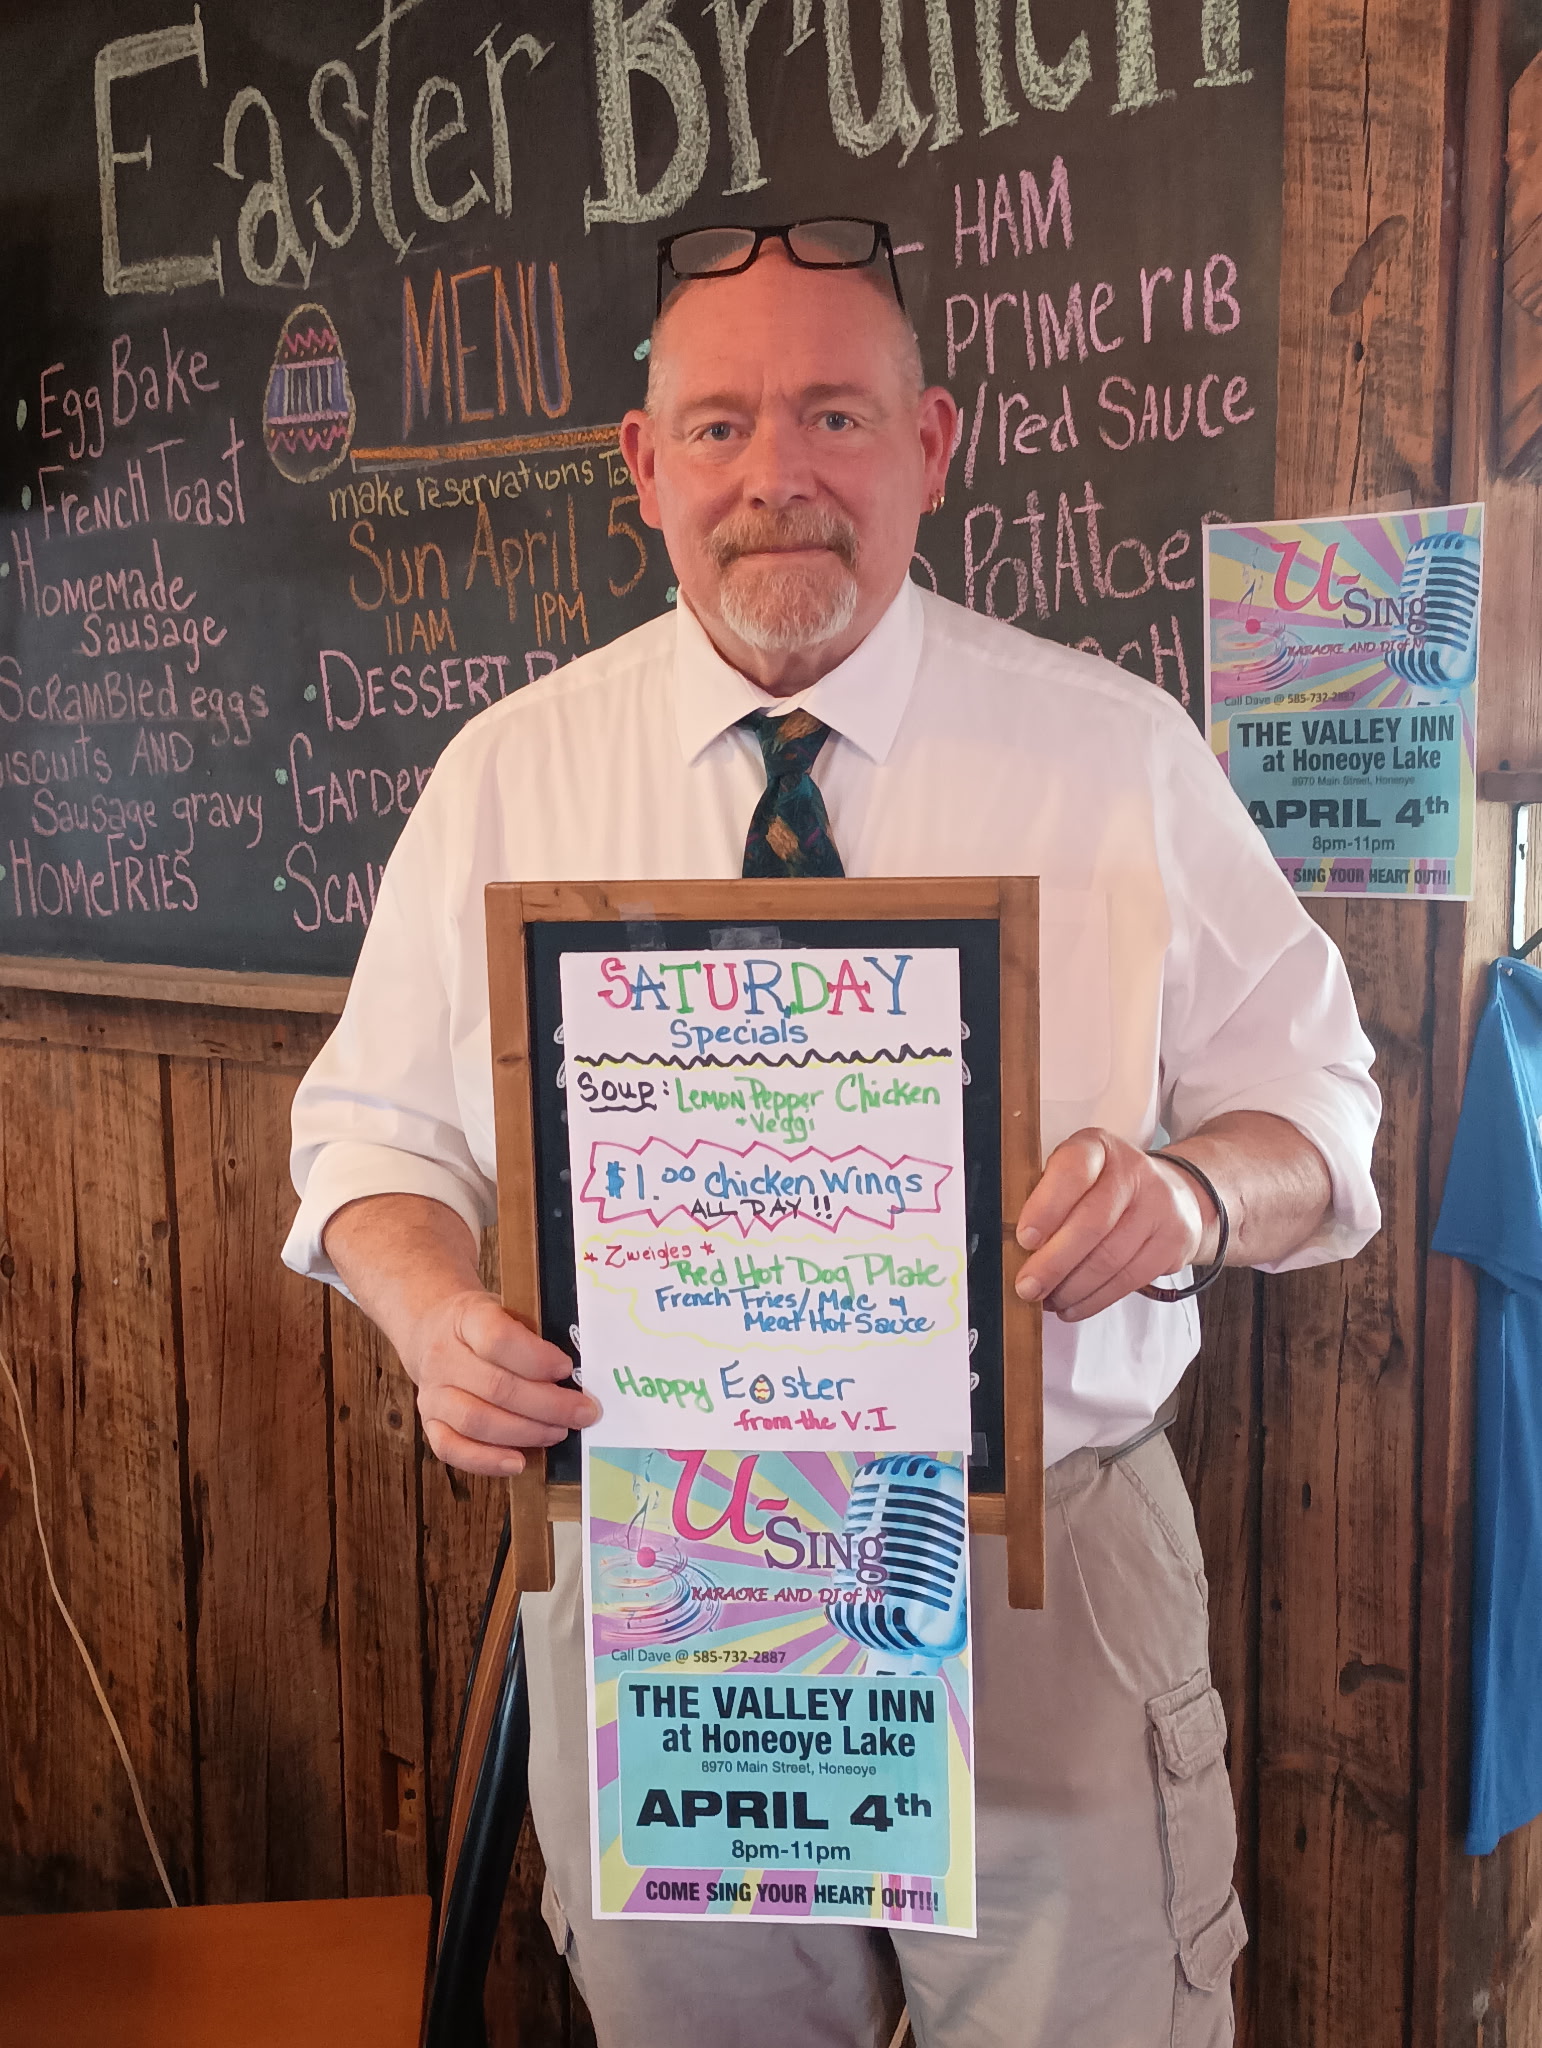 Easter Brunch
MENU
make reservations
Sun April 5
11AM 1PM
Egg Bake
French Toast
Homemade
Sausage
Scrambled eggs
AND
Sausage gravy
HomeFries
DESSERT
SATURDAY
Specials
Soup: Lemon Pepper Chicken
+ Veggi
$1.00 chicken wings
ALL DAY !!
* Zweigles *
Red Hot Dog Plate
French Fries/ Mac +
Meat Hot Sauce
Happy Easter
from the V.I
U-Sing
KARAOKE AND DJ of NY
Call Dave @ 585-732-2887
THE VALLEY INN
at Honeoye Lake
8970 Main Street, Honeoye
APRIL 4th
8pm-11pm
COME SING YOUR HEART OUT!!!
- HAM
PRIME RIB
/red SAUCE
U-Sing
KARAOKE AND DJ of NY
Call Dave @ 585-732-2887
THE VALLEY INN
at Honeoye Lake
8970 Main Street, Honeoye
APRIL 4th
8pm-11pm
SING YOUR HEART OUT!!!